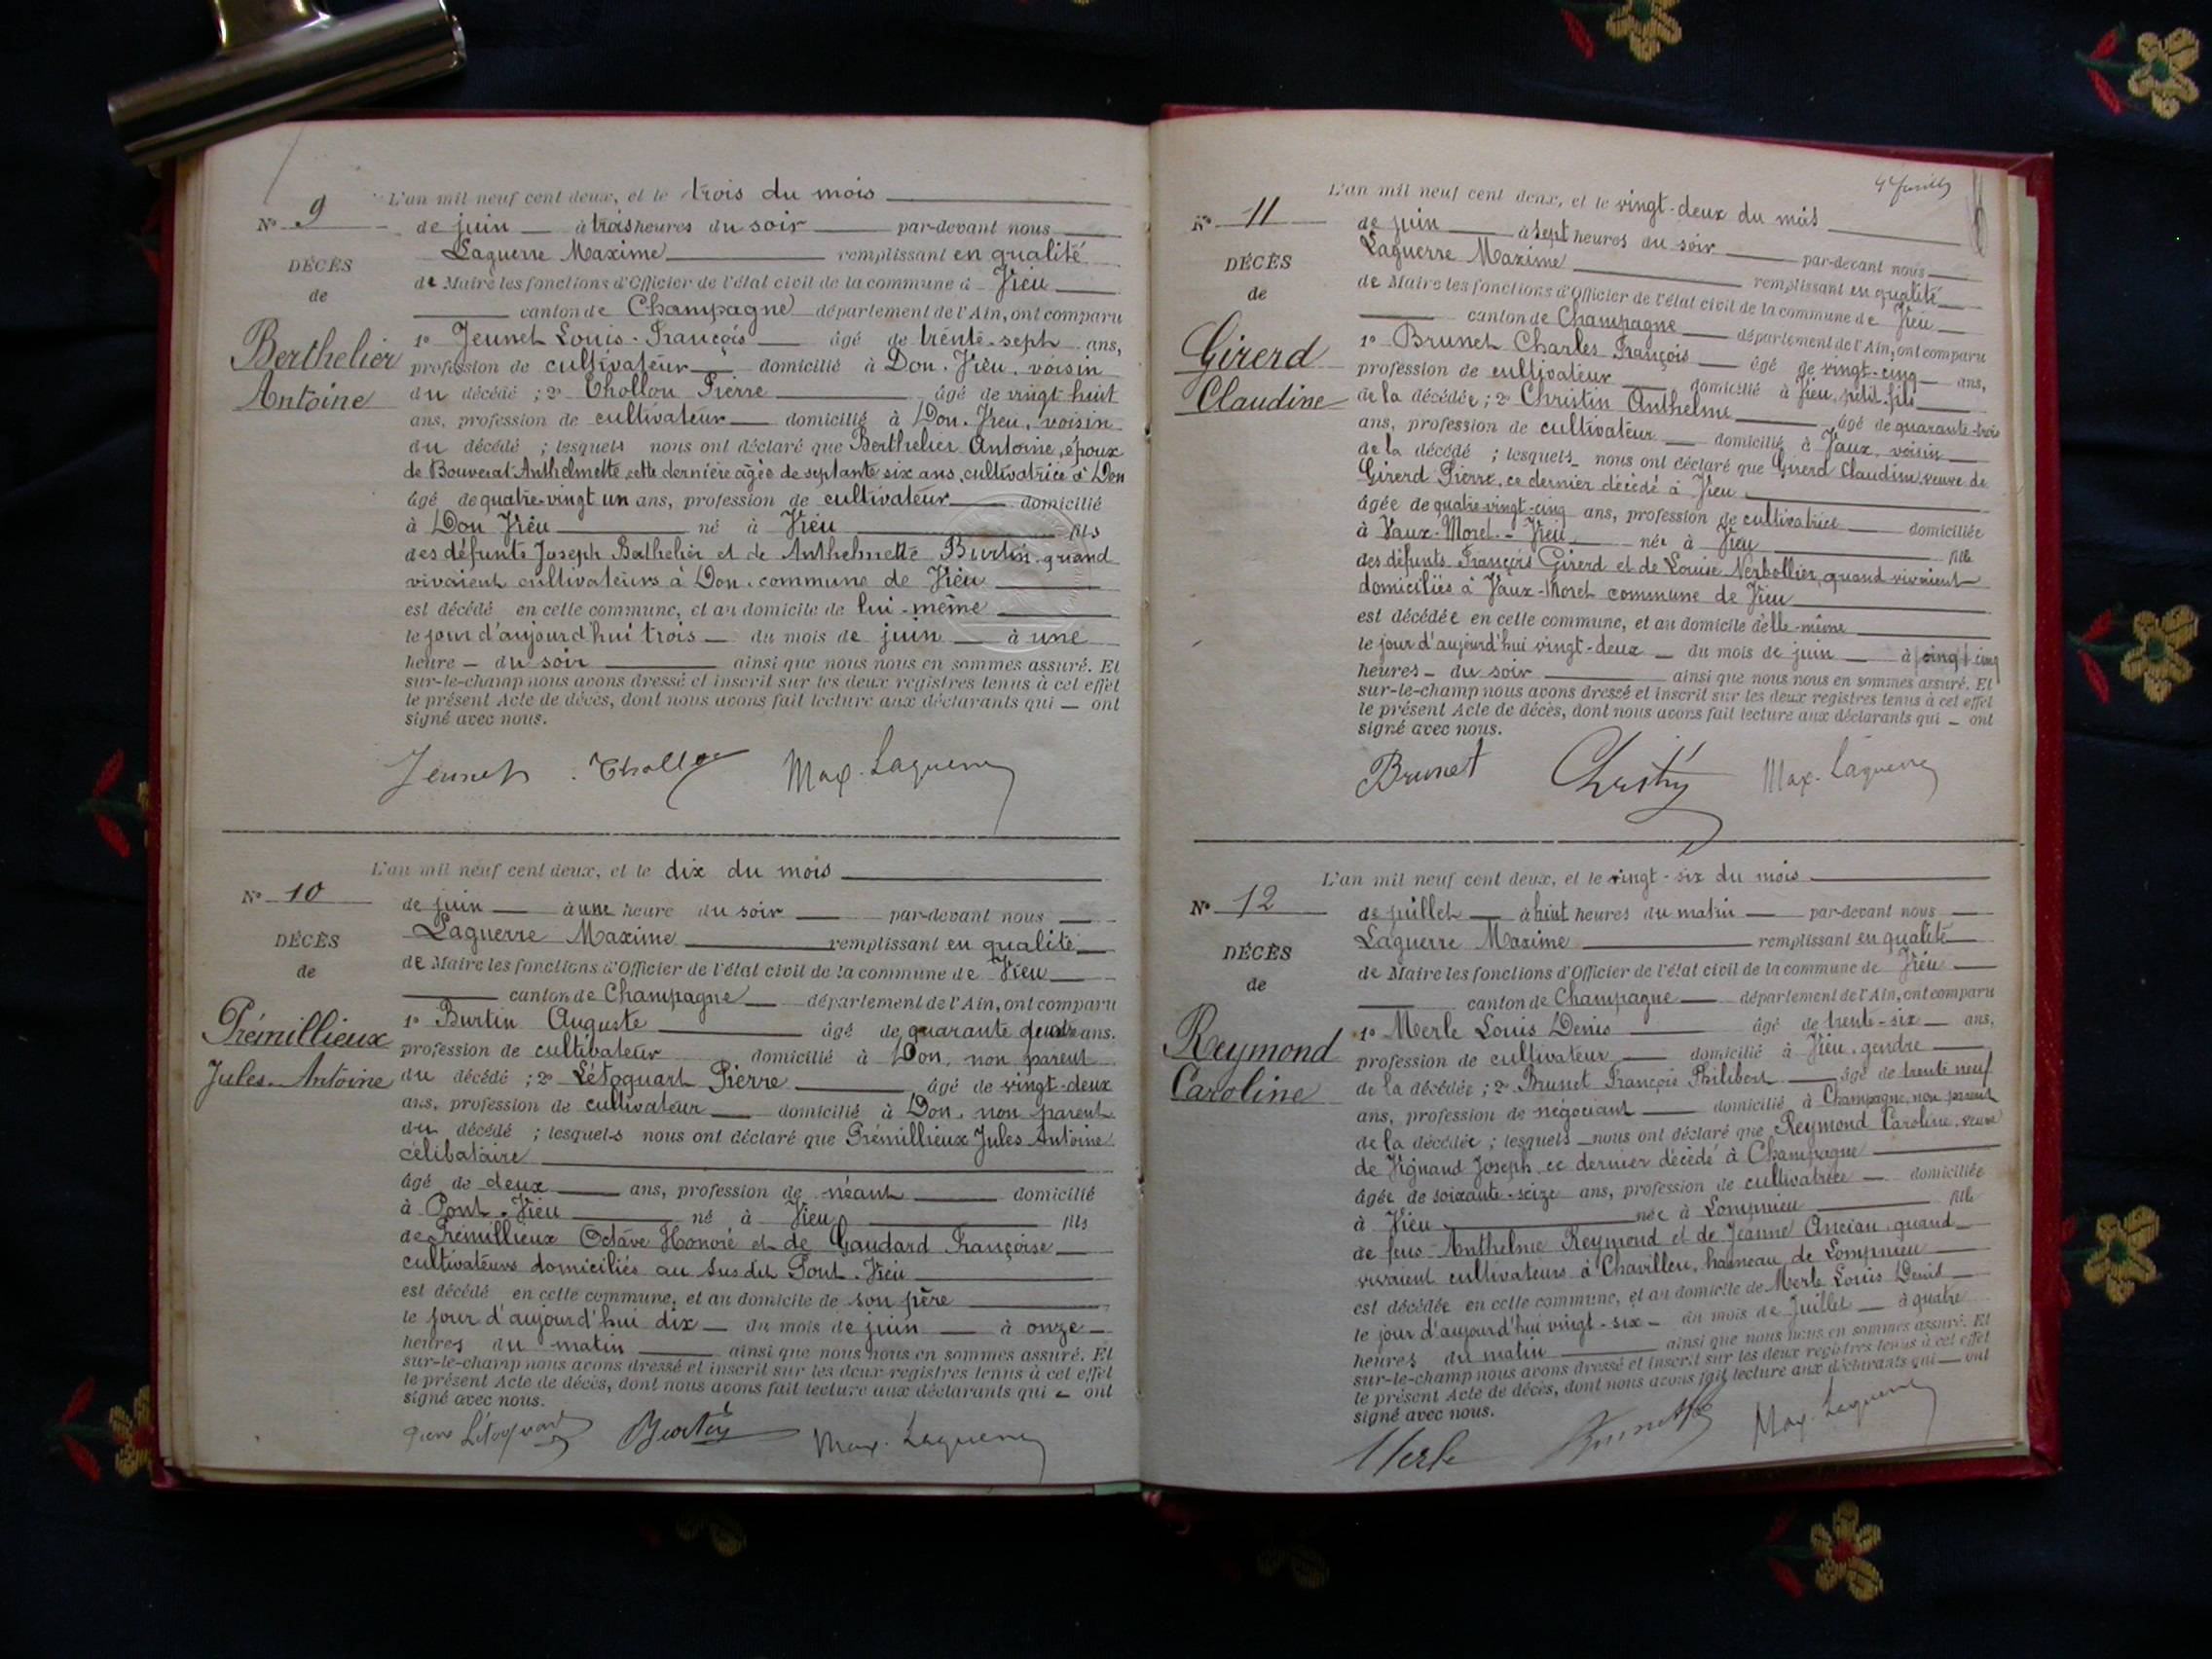 L'an mil neuf cent deux, et le trois du mois
N° 9
de juin à trois heures du soir par-devant nous
Laguerre Maxime remplissant en qualité
DÉCÈS
de Maire les fonctions d'Officier de l'état civil de la commune d Vieu
de
canton de Champagne département de l'Ain, ont comparu
1° Jeunet Louis-François âgé de trente-sept ans,
Berthelier
profession de cultivateur domicilié à Don. Vieu, voisin
Antoine
du décédé ; 2° Chollou Pierre âgé de vingt huit
ans, profession de cultivateur domicilié à Don. Vieu, voisin
du décédé ; lesquels nous ont déclaré que Berthelier Antoine, époux
de Bouverat Anthelmette, cette dernière âgée de septante six ans, cultivatrice à Don
âgé de quatre-vingt un ans, profession de cultivateur domicilié
à Don Vieu né à Vieu fils
des défunts Joseph Berthelier et de Anthelmette Burtin, quand
vivaient cultivateurs à Don, commune de Vieu
est décédé en cette commune, et au domicile de lui-même
le jour d'aujourd'hui trois du mois de juin à une
heure du soir ainsi que nous nous en sommes assuré. Et
sur-le-champ nous avons dressé et inscrit sur les deux registres tenus à cet effet
le présent Acte de décès, dont nous avons fait lecture aux déclarants qui ont
signé avec nous.
Jeunet Chollou Max. Laguerre
L'an mil neuf cent deux, et le dix du mois
N° 10
de juin à une heure du soir par-devant nous
Laguerre Maxime remplissant en qualité
DÉCÈS
de Maire les fonctions d'Officier de l'état civil de la commune de Vieu
de
canton de Champagne département de l'Ain, ont comparu
1° Burtin Auguste âgé de quarante quatre ans.
Prémillieux
profession de cultivateur domicilié à Don, non parent
Jules-Antoine
du décédé ; 2° Létoquart Pierre âgé de vingt-deux
ans, profession de cultivateur domicilié à Don, non parent
du décédé ; lesquels nous ont déclaré que Prémillieux Jules Antoine
célibataire
âgé de deux ans, profession de néant domicilié
à Pont. Vieu né à Vieu fils
de Prémillieux Octave Honoré et de Gaudard Françoise
cultivateurs domiciliés au susdit Pont. Vieu
est décédé en cette commune, et au domicile de son père
le jour d'aujourd'hui dix du mois de juin à onze
heures du matin ainsi que nous nous en sommes assuré. Et
sur-le-champ nous avons dressé et inscrit sur les deux registres tenus à cet effet
le présent Acte de décès, dont nous avons fait lecture aux déclarants qui ont
signé avec nous.
Pierre Létoquart Burtin Max. Laguerre
L'an mil neuf cent deux, et le vingt-deux du mois
N° 11
de juin à sept heures du soir par-devant nous
Laguerre Maxime remplissant en qualité
DÉCÈS
de Maire les fonctions d'Officier de l'état civil de la commune de Vieu
de
canton de Champagne département de l'Ain, ont comparu
1° Brunet Charles François âgé de vingt-cinq ans,
Girerd
profession de cultivateur domicilié à Vieu, petit-fils
Claudine
de la décédée ; 2° Christin Anthelme âgé de quarante-trois
ans, profession de cultivateur domicilié à Vaux, voisin
de la décédé ; lesquels nous ont déclaré que Girerd Claudine, veuve de
Girerd Pierre, ce dernier décédé à Vieu
âgée de quatre-vingt-cinq ans, profession de cultivatrice domiciliée
à Vaux-Moret. - Vieu née à Vieu fille
des défunts François Girerd et de Louise Nerbollier, quand vivaient
domiciliés à Vaux-Moret commune de Vieu
est décédée en cette commune, et au domicile d'elle-même
le jour d'aujourd'hui vingt-deux du mois de juin à cinq cinq
heures du soir ainsi que nous nous en sommes assuré. Et
sur-le-champ nous avons dressé et inscrit sur les deux registres tenus à cet effet
le présent Acte de décès, dont nous avons fait lecture aux déclarants qui ont
signé avec nous.
Brunet Christin Max. Laguerre
L'an mil neuf cent deux, et le vingt-six du mois
N° 12
de juillet à huit heures du matin par-devant nous
Laguerre Maxime remplissant en qualité
DÉCÈS
de Maire les fonctions d'Officier de l'état civil de la commune de Vieu
de
canton de Champagne département de l'Ain, ont comparu
1° Merle Louis Denis âgé de trente-six ans,
Reymond
profession de cultivateur domicilié à Vieu, gendre
Caroline
de la décédée ; 2° Brunet François Philibert âgé de trente neuf
ans, profession de négociant domicilié à Champagne, non parent
de la décédée ; lesquels nous ont déclaré que Reymond Caroline, veuve
de Vignand Joseph, ce dernier décédé à Champagne
âgée de soixante-seize ans, profession de cultivatrice domiciliée
à Vieu née à Lompnieu fille
de feus Anthelme Reymond et de Jeanne Ancian, quand
vivaient cultivateurs à Chavilleu, hameau de Lompnieu
est décédée en cette commune, et au domicile de Merle Louis Denis
le jour d'aujourd'hui vingt-six du mois de Juillet à quatre
heures du matin ainsi que nous nous en sommes assuré. Et
sur-le-champ nous avons dressé et inscrit sur les deux registres tenus à cet effet
le présent Acte de décès, dont nous avons fait lecture aux déclarants qui ont
signé avec nous.
Merle Brunet Max. Laguerre